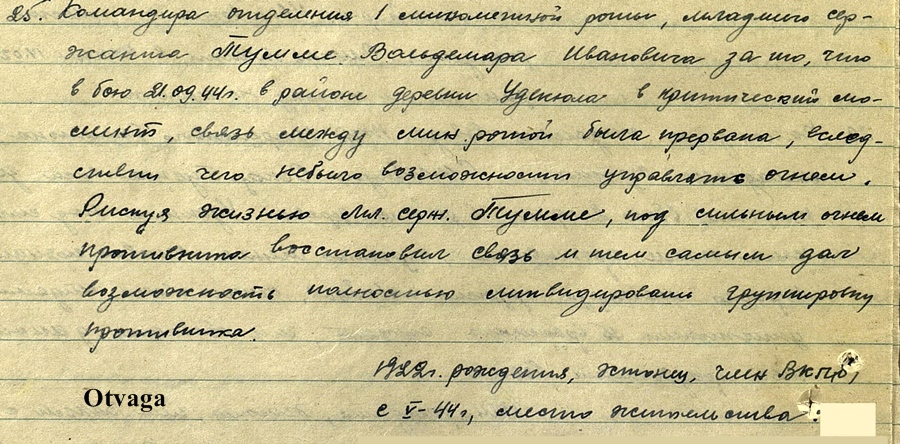 25. Командира отделения 1 минометной роты, младшего сер-
жанта Тумме Вальдемара Ивановича за то, что
в бою 21.09.44г. в районе деревни Удекюла в критический мо-
мент, связь между мин.ротой была прервана, вслед-
ствии чего небыло возможности управлять огнем.
Рискуя жизнью мл. серж. Тумме, под сильным огнем
противника восстановил связь и тем самым дал
возможность полностью ликвидировать группировку
противника.
1922г. рождения, эстонец, член ВКП/б/
с V-44г, место жительства:
Otvaga